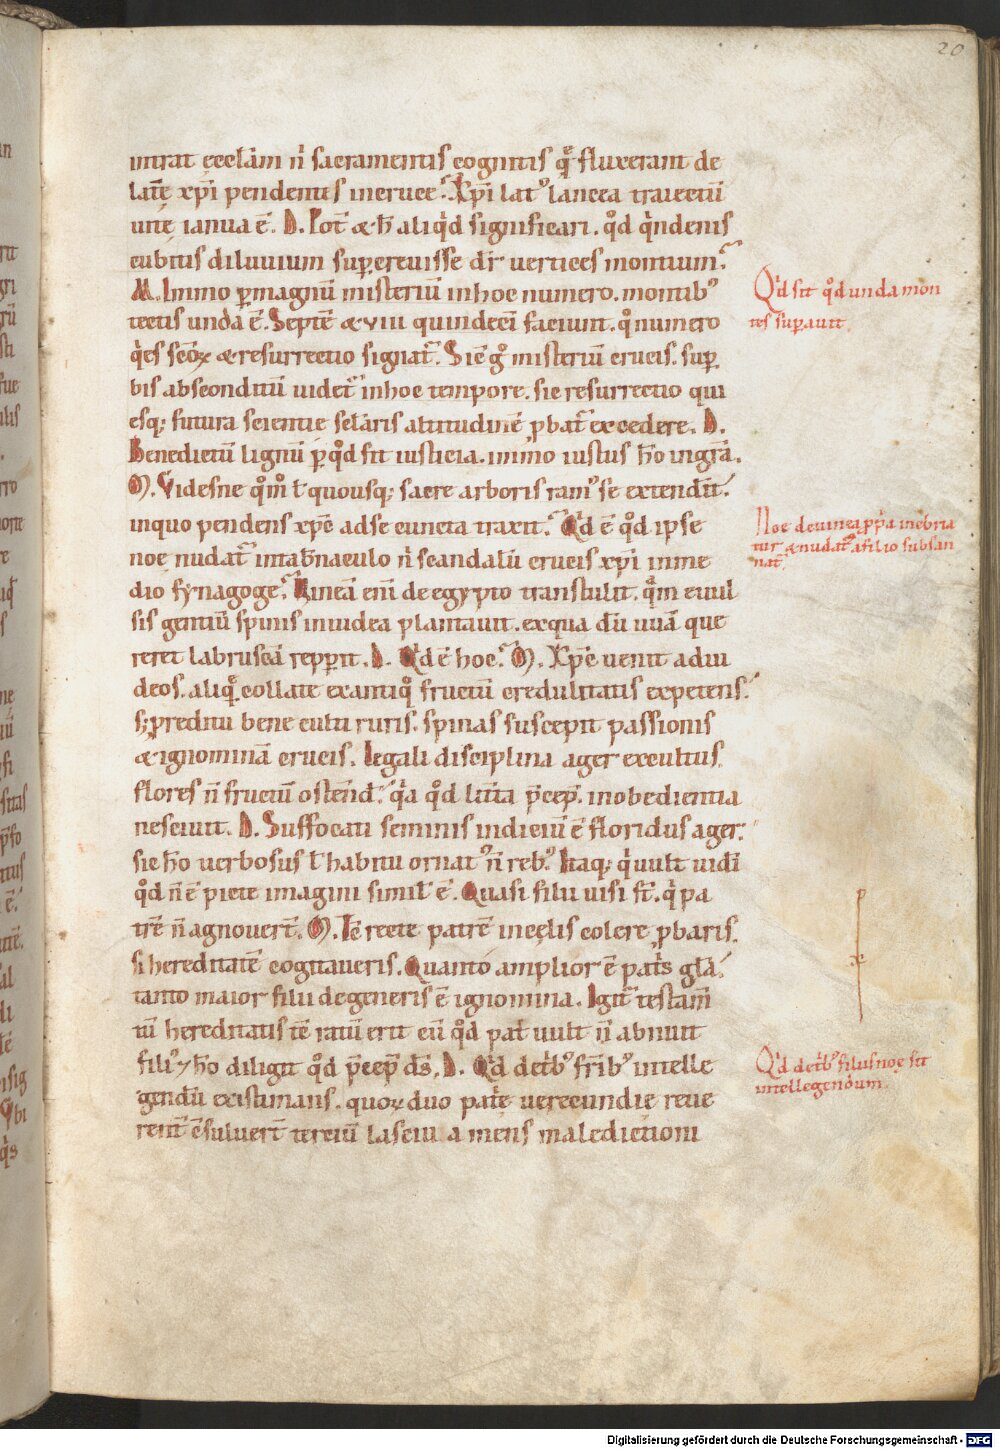 20
intrat ęcclām n̄ sacramentis cognitis q̄ fluxerant de
latē xp̄i pendentis incruce. Xp̄i lat᾽ lancea traiectū
uitę ianua ē. D. Pot̄ & h̄ aliq̇d significari. qd̊ q̇ndenis
cubitis diluuium supercreuisse dr̄ uertices montium.
M. Immo ꝑmagnū misteriū inhoc numero. montib᾽
tectis unda ē. Septē & viii quindecī faciunt. qo̊ numero
& resurrectio signat̄. Sic g̊ misteriū crucis. suꝑ
bis absconditū uidet̄ inhoc tempore. sic resurrectio qui
esq; futura scientie altitudinē ꝓbat̄ excedere. D.
Benedictū lignū ꝑ qd̊ fit iusticia. immo iustus h̊o ingrā.
M. Videsne qo̊m̊ ł quousq; sacre arboris ram᾽ se extendit.
inquo pendens xp̄c adse cuncta traxit. Qd ē qd̊ ipse
noe nudat̄ intab̄naculo n̄ scandalū crucis xp̄i inme
dio synagoge. Vineā enī de egypto transtulit. quā euul
sis gentiū spinis iniudea plantauit. exqua dū uuā que
reret labruscā repꝑit. D. Qd ē hoc. M. Xp̄c uenit adiu
deos. collate exantiq̊ fructū credulitatis expetens.
s; preditu bene cultu ruris. spinas suscepit passionis
& ignominiā crucis. Legali disciplina ager excultus
flores n̄ fructū ostend̄. q̇a qd̊ littā p̄cep̄. inobedientia
nesciuit. D. Suffocati seminis indiciū ē floridus ager.
sic h̊o uerbosus ł habitu ornat᾽ n̄ reb᾽. Itaq; q̇ uult uidī
qd̊ n̄ ē picte imagini simil̄ ē. Quasi filii uisi st̄. q̇ pa
trē n̄ agnouert̄. M. Tē recte patrē incęlis colere ꝓbaris.
si hereditatē cogitaueris. Quanto amplior ē pat̄s gl̄a.
tanto maior filii degeneris ē ignominia. Igit̄ testam̄
tū hereditatis tē ratū erit cū qd̊ pat̄ uult n̄ abnuit
fili᾽ & h̊o diligit qd̊ p̄cep̄ d̄s. D. Qd̊ detrib᾽ fr̄ib᾽ intelle
gendū existimans. quoꝝ duo patē uerecundie reue
rent̄ terciū lasciu a mens maledictioni
Qd sit qd̊ unda mon
tes suꝑauit.
Noe deuinea ppᵃ inebria
tur & nudat̄ afilio subsan
nat̄.
Qd detrib᾽ filiis noe sit
intellegendum.
Digitalisierung gefördert durch die Deutsche Forschungsgemeinschaft - DFG